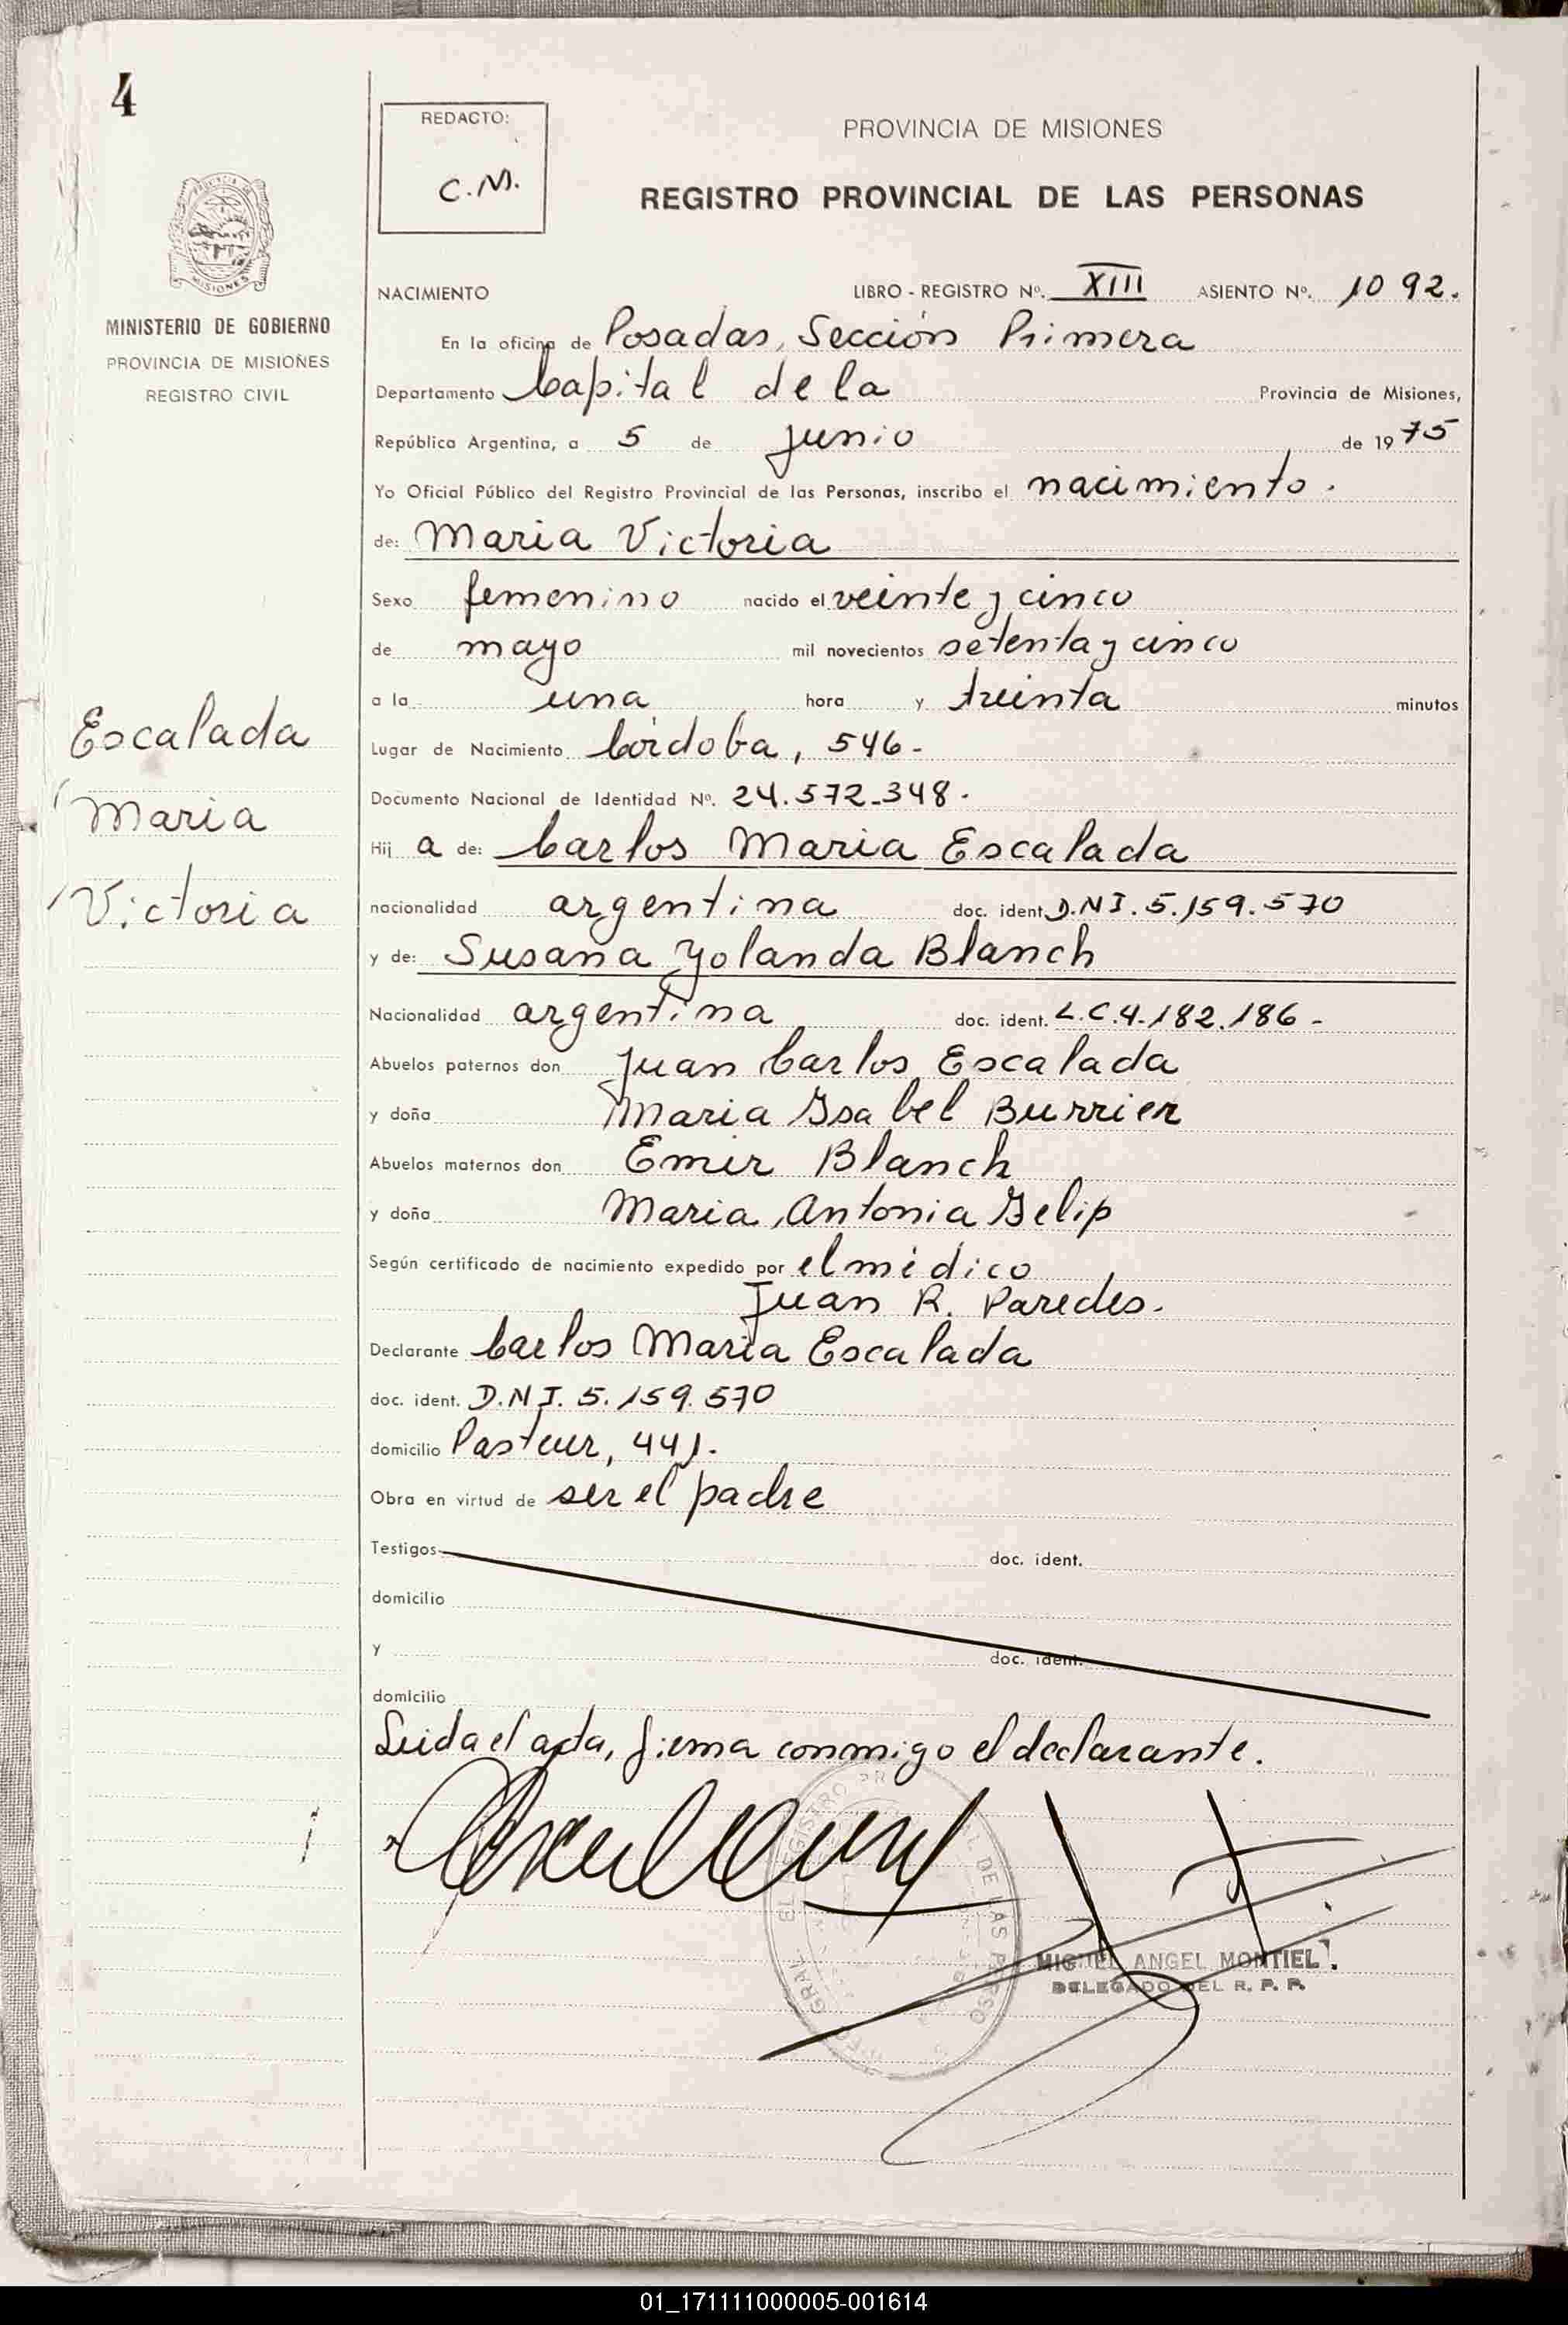 4
REDACTO:
C.M.
PROVINCIA DE MISIONES
REGISTRO PROVINCIAL DE LAS PERSONAS
MINISTERIO DE GOBIERNO
PROVINCIA DE MISIONES
REGISTRO CIVIL
NACIMIENTO LIBRO - REGISTRO Nº. XIII ASIENTO Nº. 1092.
En la oficina de Posadas, Sección Primera
Departamento Capital de la Provincia de Misiones,
República Argentina, a 5 de junio de 1975
Yo Oficial Público del Registro Provincial de las Personas, inscribo el nacimiento.
de: Maria Victoria
Sexo femenino nacido el veinte y cinco
de mayo mil novecientos setenta y cinco
a la una hora y treinta minutos
Escalada
Maria
Victoria
Lugar de Nacimiento Córdoba, 546-
Documento Nacional de Identidad Nº. 24.572.348.
Hij a de: Carlos Maria Escalada
nacionalidad argentina doc. ident. D.N.I. 5.159.570
y de: Susana Yolanda Blanch
Nacionalidad argentina doc. ident. L.C.4.182.186-
Abuelos paternos don Juan Carlos Escalada
y doña Maria Isabel Burrier
Abuelos maternos don Emir Blanch
y doña Maria Antonia
Según certificado de nacimiento expedido por el médico
Juan R. Paredes.
Declarante Carlos Maria Escalada
doc. ident. D.N.I. 5.159.570
domicilio Pasteur, 441.
Obra en virtud de ser el padre
Testigos doc. ident.
domicilio
y doc. ident.
domicilio
Leida el acta, firma conmigo el declarante.
MIGUEL ANGEL MONTIEL
DELEGADO DEL R. P. P.
01_171111000005-001614